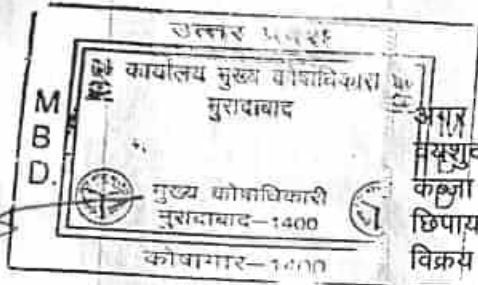 उत्तर प्रदेश
कार्यालय मुख्य कोषाधिकारी
मुरादाबाद
M
B
D.
मुख्य कोषाधिकारी
मुरादाबाद–1400
कोषागार–1400
अगर
कब्जा
छिपाय
विक्रय